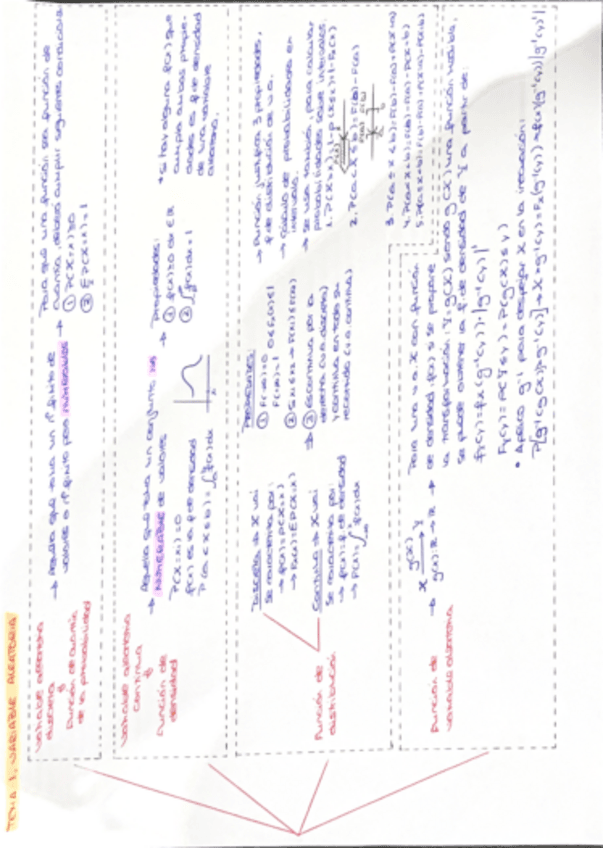 TEMA 1. VARIABLE ALEATORIA
Variable aleatoria
discreta
y
función de cuantía
de la probabilidad
→ Aquella que toma un nº finito de
valores o nº finito pero NUMERABLES
→ Para que una función sea función de
cuantía, deberá cumplir siguiente
① P(X=x)≥0
② ΣP(X=x)=1
Variable aleatoria
continua
y
función de
densidad
→ Aquella que toma un conjunto NO
NUMERABLE de valores
P(X=x)=0
f(x) es la f. de densidad
P(a<X≤b)=∫f(x)dx
→ Propiedades:
① f(x)≥0 x∈R
② ∫f(x)dx=1
* Si hay alguna f(x) que
cumpla ambas propie-
dades es f. de densidad
de una variable
aleatoria.
Función de
distribución
Discreta → X va
se caracteriza por:
→ f(x)=P(X=x)
Continua → X va
se caracteriza por:
→ f(x)=f. de densidad
→ F(x)=∫f(x)dx
Propiedades:
① F(-∞)=0 0≤F(x)≤1
F(+∞)=1
③ Escalonada para
discreta
y continua en todo su
recorrido (v.a. continua)
→ Función cumpla 3 propiedades,
f. de distribución de v.a.
→ Cálculo de probabilidades en
intervalo.
→ Se usa también para calcular
probabilidades sobre intervalos.
1. P(X>x)=1-P(X≤x)=1-F(x)
2. P(a<X≤b)=F(b)-F(a)
3. P(a≤X≤b)=F(b)-F(a)+P(X=a)
4. P(a<X<b)=F(b)-F(a)-P(X=b)
5. P(a≤X<b)=F(b)-F(a)+P(X=a)-P(X=b)
Función de
variable aleatoria
→ X g(x) Y
g(x) R→R
→ Para una v.a. X con función
de densidad f(x) si se propone
la transformación Y=g(X) siendo g(X) una función
se puede obtener la f. de densidad de Y a partir de:
F(y)=P(Y≤y)=P(g(X)≤y)
• Aplico g⁻¹ para despejar X en la inecuación: